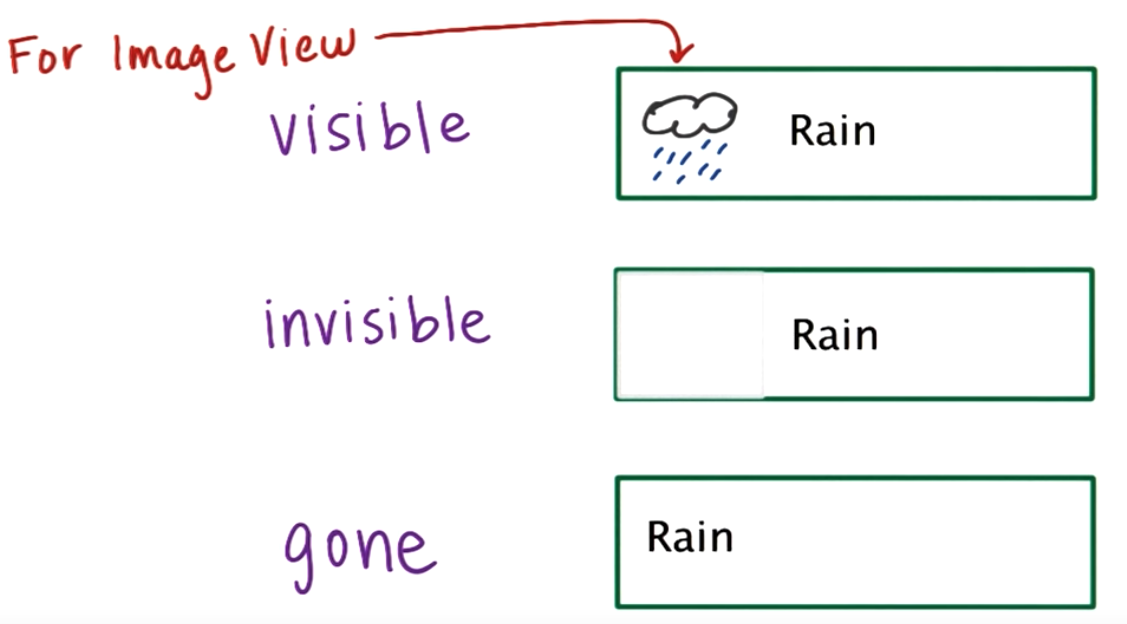 For Image View
visible
Rain
invisible
Rain
gone
Rain